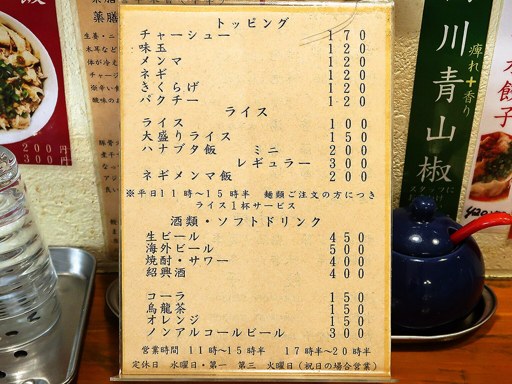 トッピング
チャーシュー 170
味玉 120
メンマ 120
ネギ 120
きくらげ 120
パクチー 120
ライス
ライス 100
大盛りライス 150
ハナブタ飯 ミニ 200
レギュラー 300
ネギメンマ飯 200
※平日11時〜15時半 麺類ご注文の方につき
ライス1杯サービス
酒類・ソフトドリンク
生ビール 450
海外ビール 500
焼酎・サワー 400
紹興酒 400
コーラ 150
烏龍茶 150
オレンジ 150
ノンアルコールビール 300
営業時間 11時〜15時半 17時半〜20時半
定休日 水曜日・第一 第三 火曜日(祝日の場合営業)
200円
300円
川青山椒
痺れ+香り
水餃子